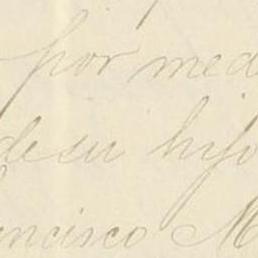 por med
de su hijo
ncisco M